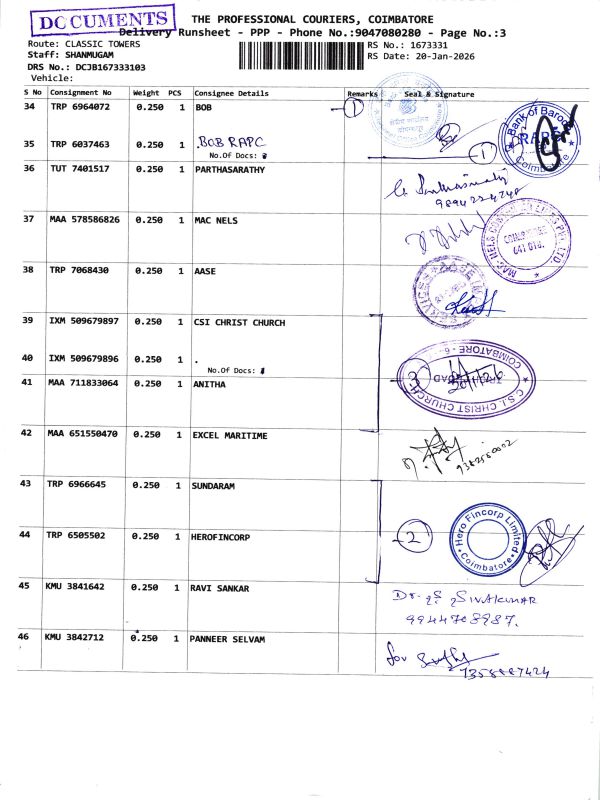 DOCUMENTS
THE PROFESSIONAL COURIERS, COIMBATORE
Delivery Runsheet - PPP - Phone No.:9047080280 - Page No.:3
Route: CLASSIC TOWERS
Staff: SHANMUGAM
DRS No.: DCJB167333103
Vehicle:
RS No.: 1673331
RS Date: 20-Jan-2026
S No Consignment No Weight PCS Consignee Details Remarks Seal & Signature
34 TRP 6964072 0.250 1 BOB 1
Bank of Baroda
Coimbatore
35 TRP 6037463 0.250 1 BOB RAPC 1
No.Of Docs:
36 TUT 7401517 0.250 1 PARTHASARATHY
37 MAA 578586826 0.250 1 MAC NELS
COIMBATORE
641 018.
38 TRP 7068430 0.250 1 AASE
39 IXM 509679897 0.250 1 CSI CHRIST CHURCH
40 IXM 509679896 0.250 1 .
No.Of Docs:
COIMBATORE - 6
C.S.I. CHRIST CHURCH
3
41 MAA 711833064 0.250 1 ANITHA
42 MAA 651550470 0.250 1 EXCEL MARITIME
43 TRP 6966645 0.250 1 SUNDARAM
44 TRP 6505502 0.250 1 HEROFINCORP 2
Hero Fincorp Limited
Coimbatore
45 KMU 3841642 0.250 1 RAVI SANKAR
46 KMU 3842712 0.250 1 PANNEER SELVAM
for